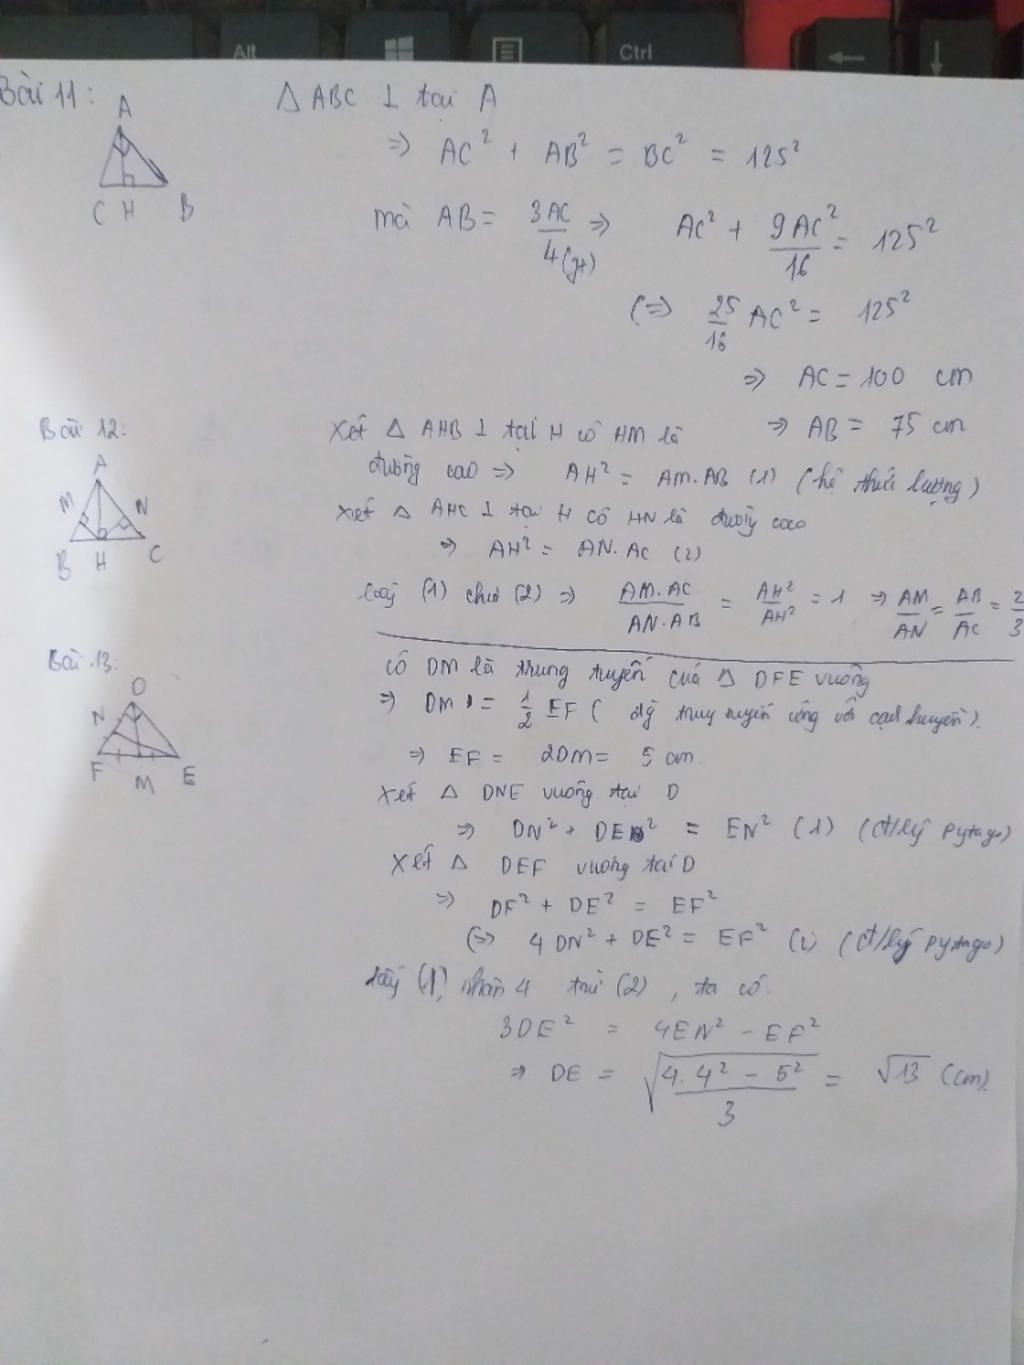 Alt
Ctrl
Bài 11:
A
C H B
Δ ABC ⊥ tại A
=> AC² + AB² = BC² = 125²
mà AB = 3AC/4 (gt) => AC² + 9AC²/16 = 125²
(=> 25/16 AC² = 125²
=> AC = 100 cm
=> AB = 75 cm
Bài 12:
A
M N
B H C
Xét Δ AHB ⊥ tại H có HM là
đường cao => AH² = AM.AB (1) (hệ thức lượng)
Xét Δ AHC ⊥ tại H có HN là đường cao
=> AH² = AN.AC (2)
Lấy (1) chia (2) => AM.AC/AN.AB = AH²/AH² = 1 => AM/AN = AB/AC = 2/3
Bài 13:
D
N
F M E
có DM là trung tuyến của Δ DFE vuông
=> DM = 1/2 EF ( tuyến ứng với cạnh huyền).
=> EF = 2DM = 5 cm
Xét Δ DNE vuông tại D
=> DN² + DE² = EN² (1) (đ/lý pytago)
Xét Δ DEF vuông tại D
=> DF² + DE² = EF²
(=> 4DN² + DE² = EF² (2) (đ/lý pytago)
Lấy (1) nhân 4 trừ (2), ta có:
3DE² = 4EN² - EF²
=> DE = √(4.4² - 5²)/3 = √13 (cm)